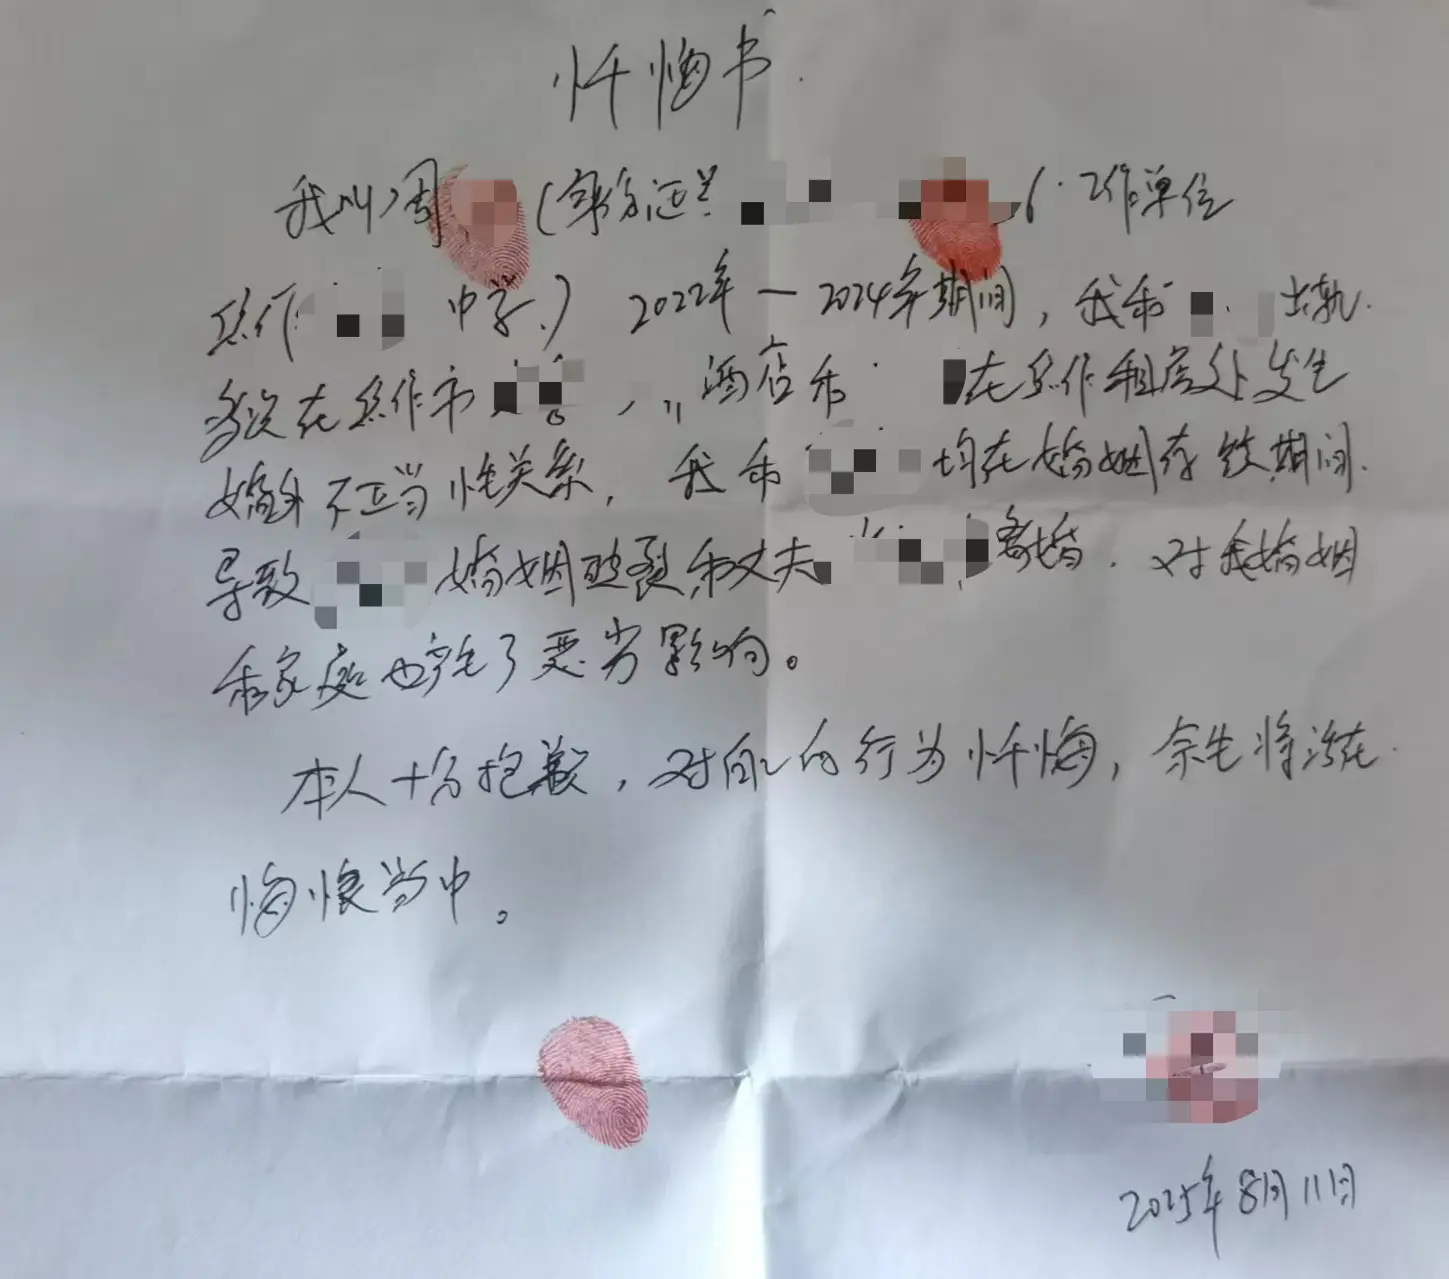 忏悔书
我叫周（身份证：6. 工作单位
焦作中学.） 2022年—2024年期间，我和出轨.
多次在焦作市酒店和在焦作租房处发生
婚外不正当性关系，我和均在婚姻存续期间.
导致婚姻破裂，和丈夫离婚. 对我婚姻
和家庭也产生了恶劣影响。
本人十分抱歉，对自己的行为忏悔，余生将活在
悔恨当中。
2025年8月11日